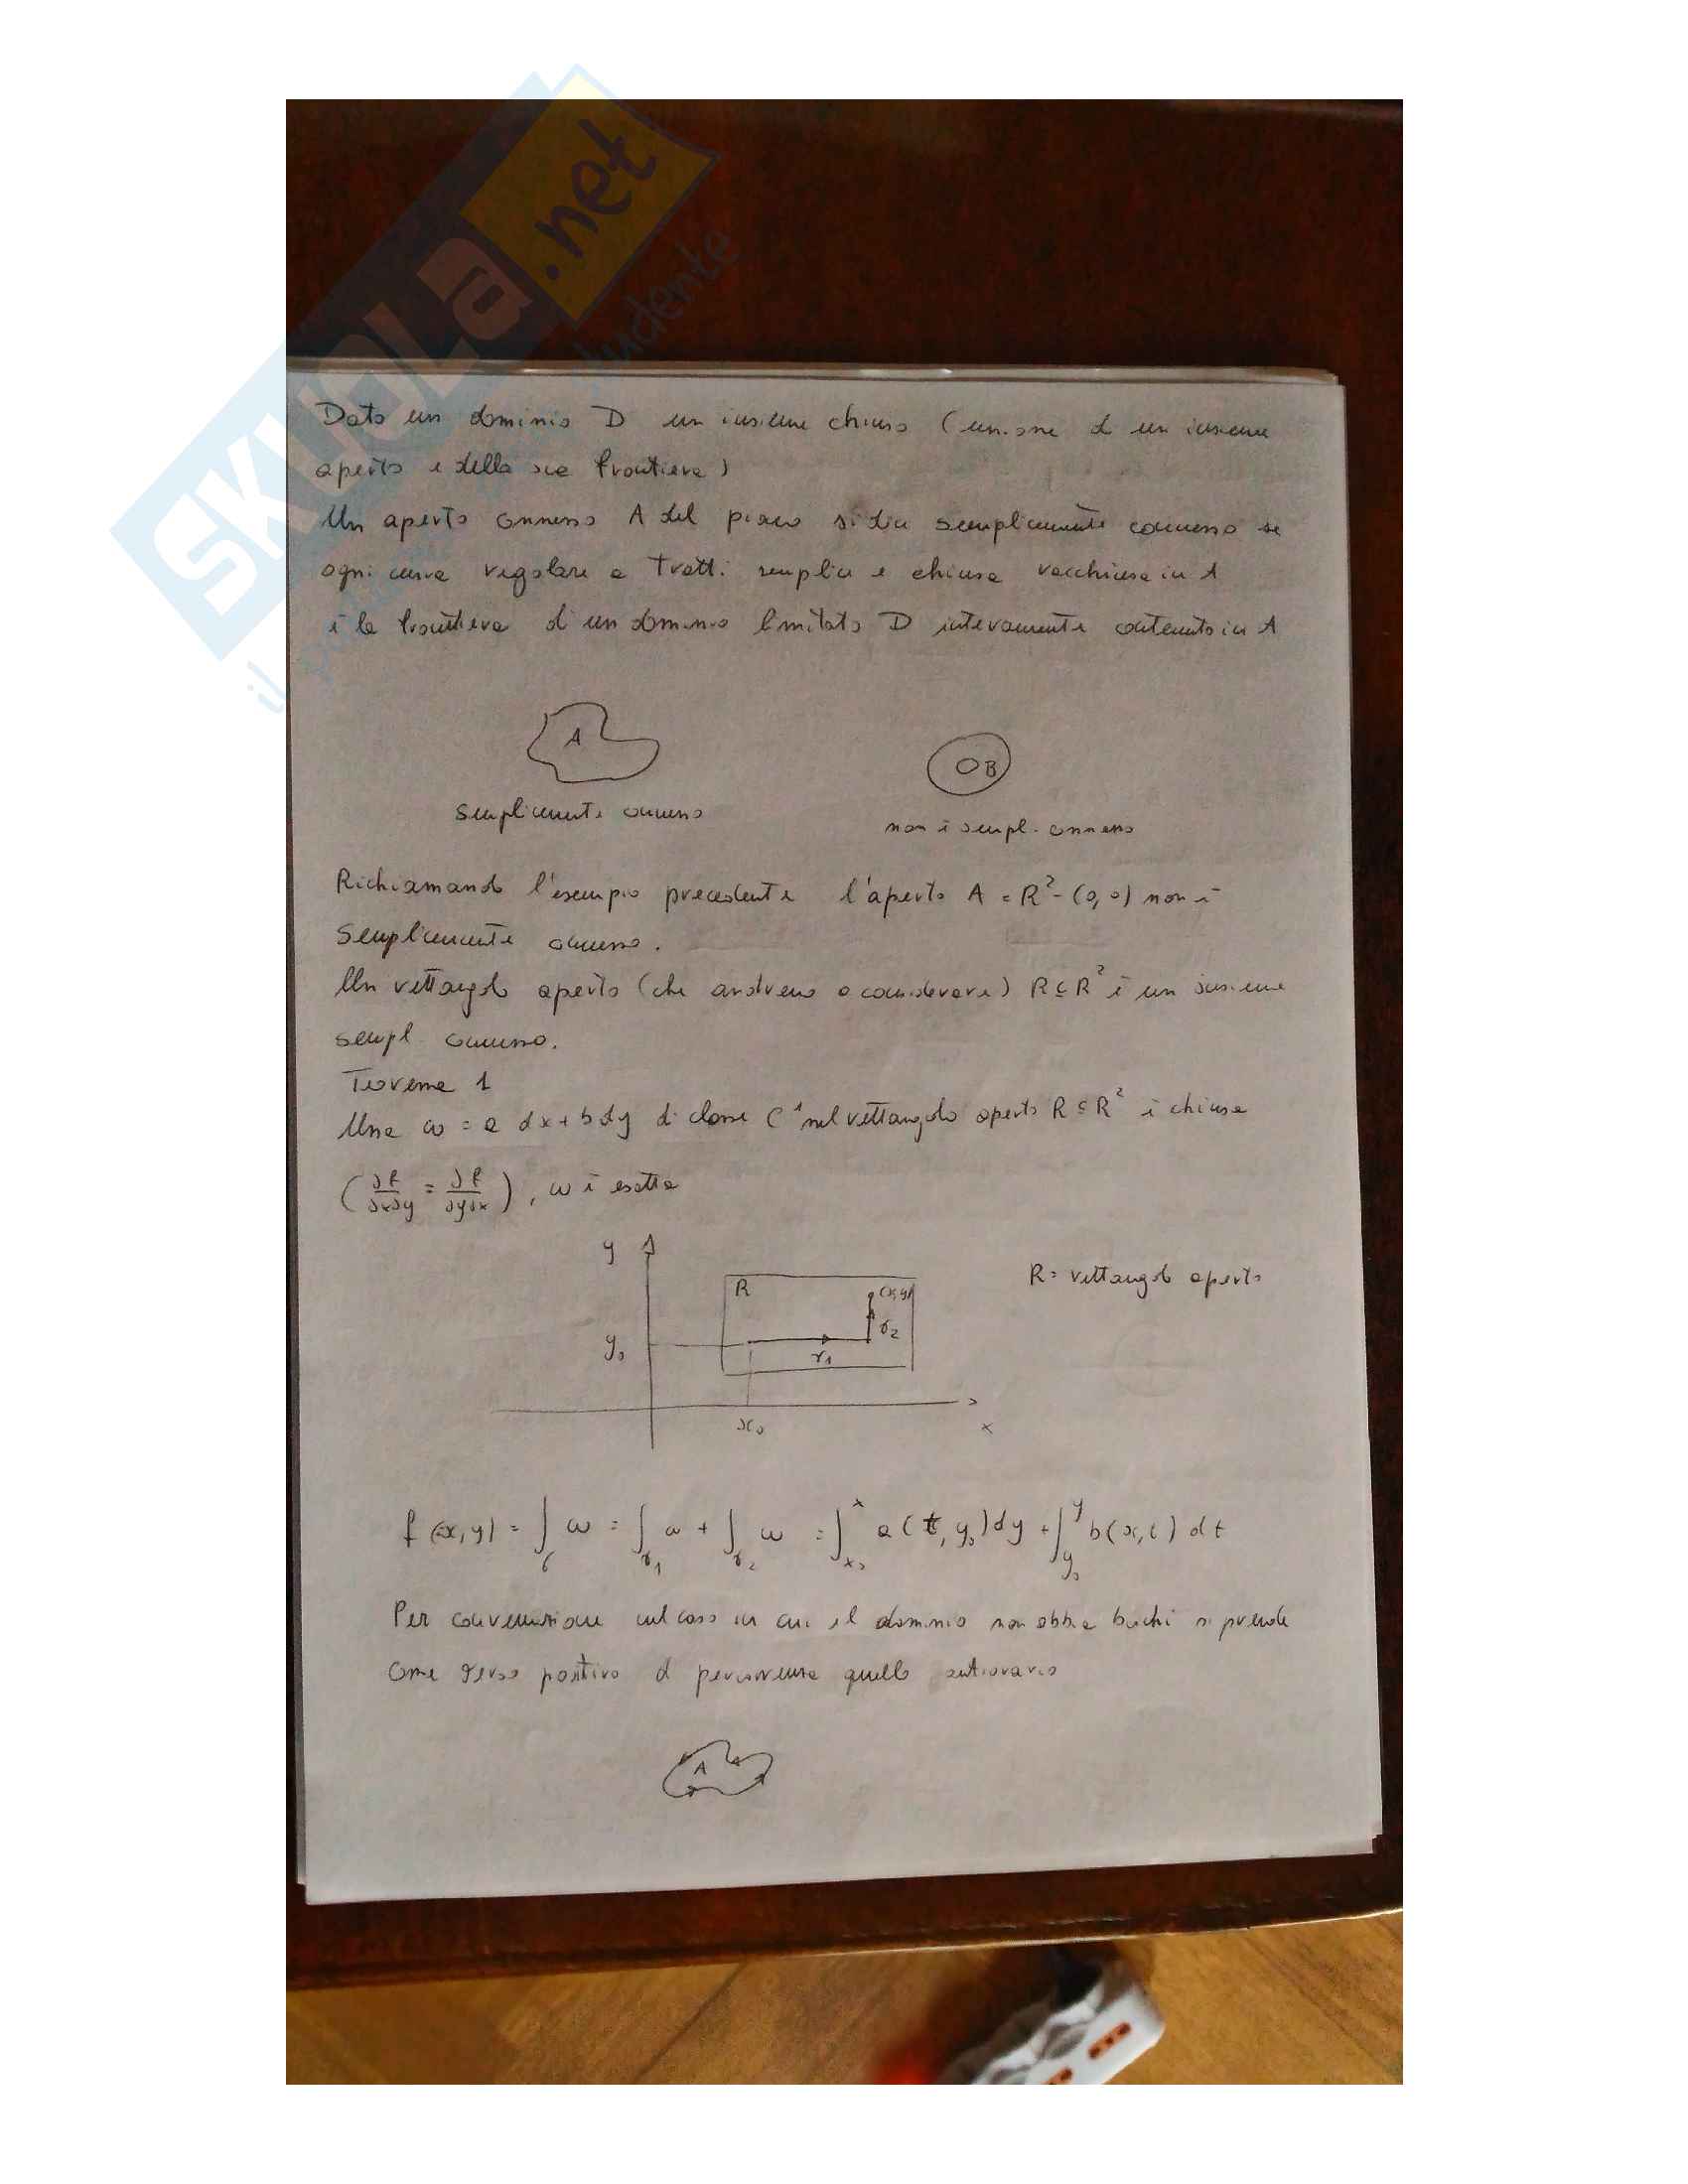 SKUOLA.net
Dato un dominio D un insieme chiuso (unione di un insieme
aperto e della sua frontiera)
Un aperto connesso A del piano si dice semplicemente connesso se
ogni curva regolare a tratti semplice e chiusa racchiusa in A
è la frontiera di un dominio limitato D interamente contenuto in A
A
OB
semplicemente connesso
non è sempl. connesso
Richiamando l'esempio precedente l'aperto A = R² - (0,0) non è
semplicemente connesso.
Un rettangolo aperto (che andremo a considerare) R ⊆ R² è un insieme
sempl connesso.
Teorema 1
Una ω = a dx + b dy di classe C¹ nel rettangolo aperto R ⊆ R² è chiusa
(∂f/∂x∂y = ∂f/∂y∂x), ω è esatta
y
R
(x,y)
R = rettangolo aperto
γ2
y₀
γ1
x₀
x
f(x,y) = ∫γ ω = ∫γ1 ω + ∫γ2 ω = ∫x₀^x a(t, y₀) dy + ∫y₀^y b(x,t) dt
Per convenzione nel caso in cui il dominio non abbia buchi si prende
come verso positivo di percorrenza quello antiorario
A